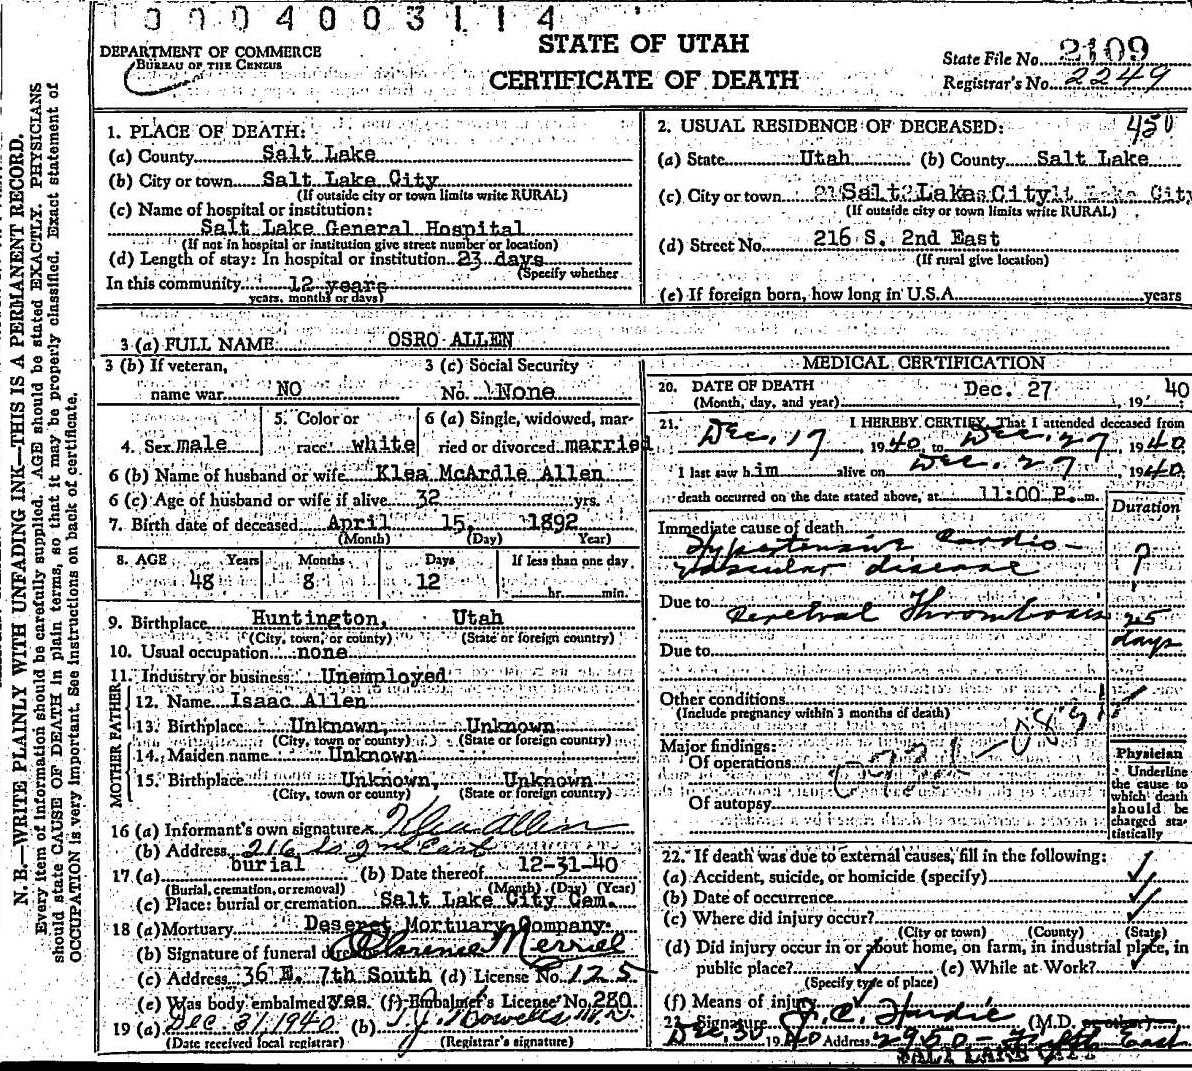 0004003114
STATE OF UTAH
CERTIFICATE OF DEATH
DEPARTMENT OF COMMERCE
BUREAU OF THE CENSUS
State File No. 2109
Registrar's No. 2249
N. B.—WRITE PLAINLY WITH UNFADING INK—THIS IS A PERMANENT RECORD.
Every item of information should be carefully supplied. AGE should be stated EXACTLY. PHYSICIANS
should state CAUSE OF DEATH in plain terms, so that it may be properly classified. Exact statement of
OCCUPATION is very important. See instructions on back of certificate.
1. PLACE OF DEATH:
(a) County Salt Lake
(b) City or town Salt Lake City
(If outside city or town limits write RURAL)
(c) Name of hospital or institution:
Salt Lake General Hospital
(If not in hospital or institution give street number or location)
(d) Length of stay: In hospital or institution 23 days
(Specify whether
In this community 12 years
years, months or days)
2. USUAL RESIDENCE OF DECEASED: 450
(a) State Utah (b) County Salt Lake
(c) City or town Salt Lake City
(If outside city or town limits write RURAL)
(d) Street No. 216 S. 2nd East
(If rural give location)
(e) If foreign born, how long in U.S.A. years
3 (a) FULL NAME: OSRO ALLEN
3 (b) If veteran,
name war NO
3 (c) Social Security
No. None
4. Sex male
5. Color or
race white
6 (a) Single, widowed, mar-
ried or divorced married
6 (b) Name of husband or wife Klea McArdle Allen
6 (c) Age of husband or wife if alive 32 yrs.
7. Birth date of deceased April 15, 1892
(Month) (Day) Year)
8. AGE Years Months Days If less than one day
48 8 12 hr. min.
9. Birthplace Huntington, Utah
(City, town, or county) (State or foreign country)
10. Usual occupation none
11. Industry or business Unemployed
FATHER
12. Name Isaac Allen
13. Birthplace Unknown, Unknown
(City, town or county) (State or foreign country)
MOTHER
14. Maiden name Unknown
15. Birthplace Unknown, Unknown
(City, town or county) (State or foreign country)
16 (a) Informant's own signature x Klea Allen
(b) Address 216 So 2nd East
17 (a) burial (b) Date thereof 12-31-40
(Burial, cremation, or removal) (Month) (Day) (Year)
(c) Place: burial or cremation Salt Lake City Cem.
18 (a) Mortuary Deseret Mortuary Company
(b) Signature of funeral dire Clarence Merrill
(c) Address 36 E. 7th South (d) License No. 125
(e) Was body embalmed? yes. (f) Embalmer's License No. 280
19 (a) Dec 31, 1940 (b) T. J. Howells M.D.
(Date received local registrar) (Registrar's signature)
MEDICAL CERTIFICATION
20. DATE OF DEATH Dec. 27, 1940
(Month, day, and year)
21. I HEREBY CERTIFY, That I attended deceased from
Dec. 17, 1940 to Dec. 27 1940
I last saw him alive on Dec. 27 1940
death occurred on the date stated above, at 11:00 P. m.
Duration
Immediate cause of death
Hypertensive Cardio-
vascular disease ?
Due to Cerebral Thrombosis 25
days
Due to
Other conditions
(Include pregnancy within 3 months of death)
Major findings:
Of operations
Of autopsy
Physician
Underline
the cause to
which death
should be
charged sta-
tistically
22. If death was due to external causes, fill in the following:
(a) Accident, suicide, or homicide (specify)
(b) Date of occurrence
(c) Where did injury occur?
(City or town) (County) (State)
(d) Did injury occur in or about home, on farm, in industrial place, in
public place? (e) While at Work?
(Specify type of place)
(f) Means of injury
23. Signature J. C. Hardie (M.D. or other)
Dec. 30 1940 Address 2950 - First East
SALT LAKE CITY